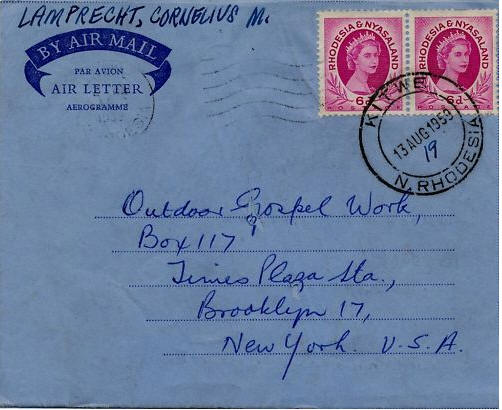 LAMPRECHT, CORNELIUS M.
BY AIR MAIL
PAR AVION
AIR LETTER
AEROGRAMME
RHODESIA & NYASALAND
6d
RHODESIA & NYASALAND
6d
KITWE
13 AUG 1958
19
N. RHODESIA
Outdoor Gospel Work,
Box 117
Times Plaza Sta.,
Brooklyn 17,
New York. U.S.A.